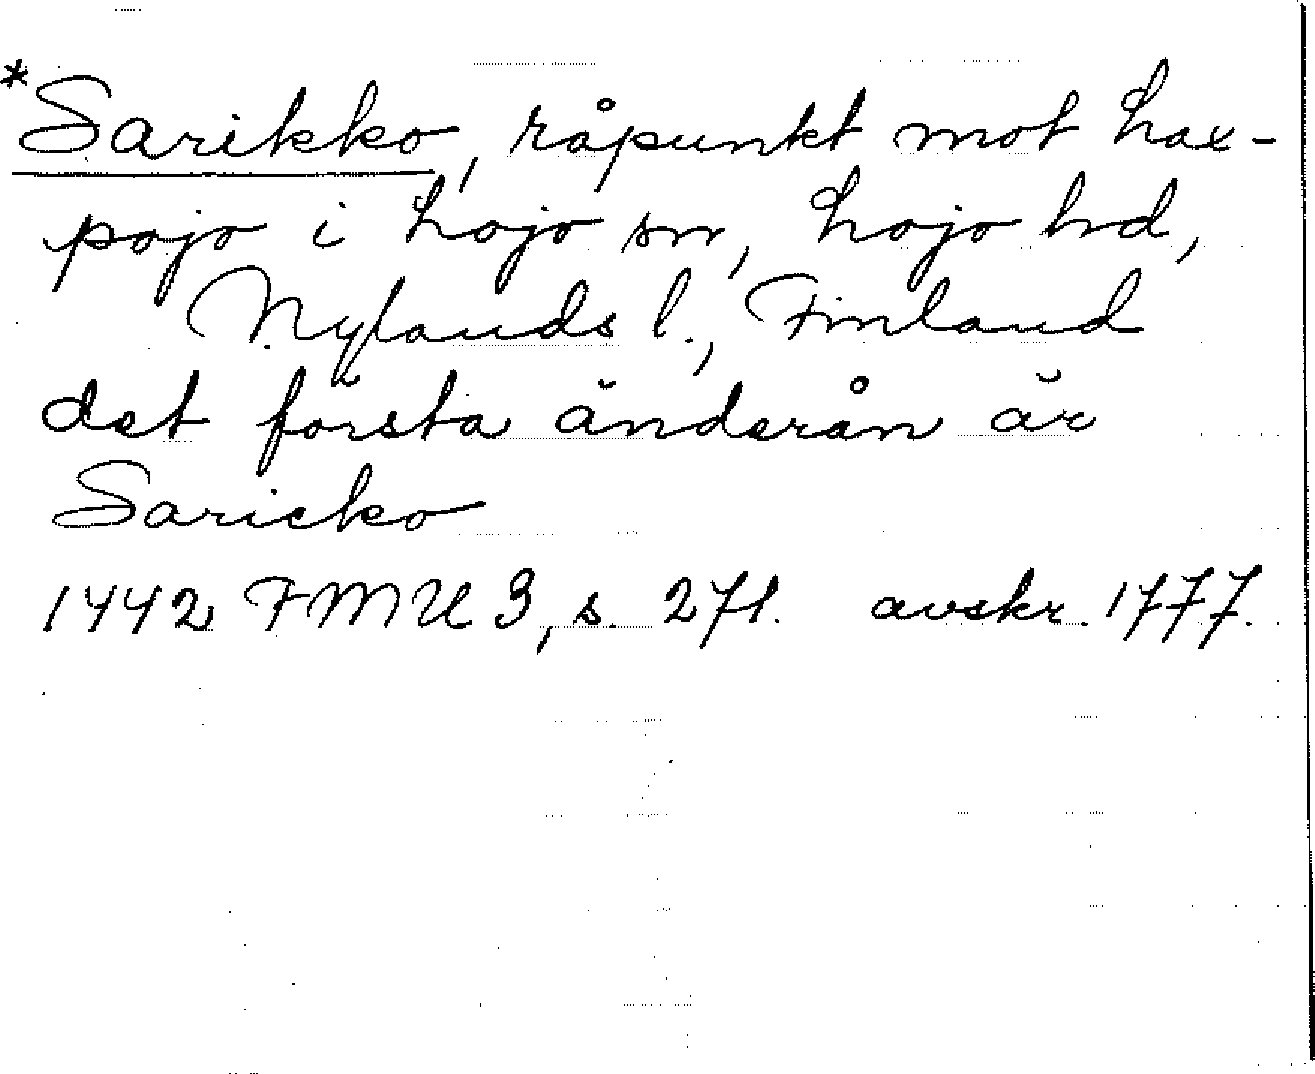 *Sarikko, råpunkt mot Lax-
pojo i Lojo sn, Lojo hd,
Nylands l., Finland
det första änderån är
Saricko
1442 FMU 3, s. 271. avskr. 1777.